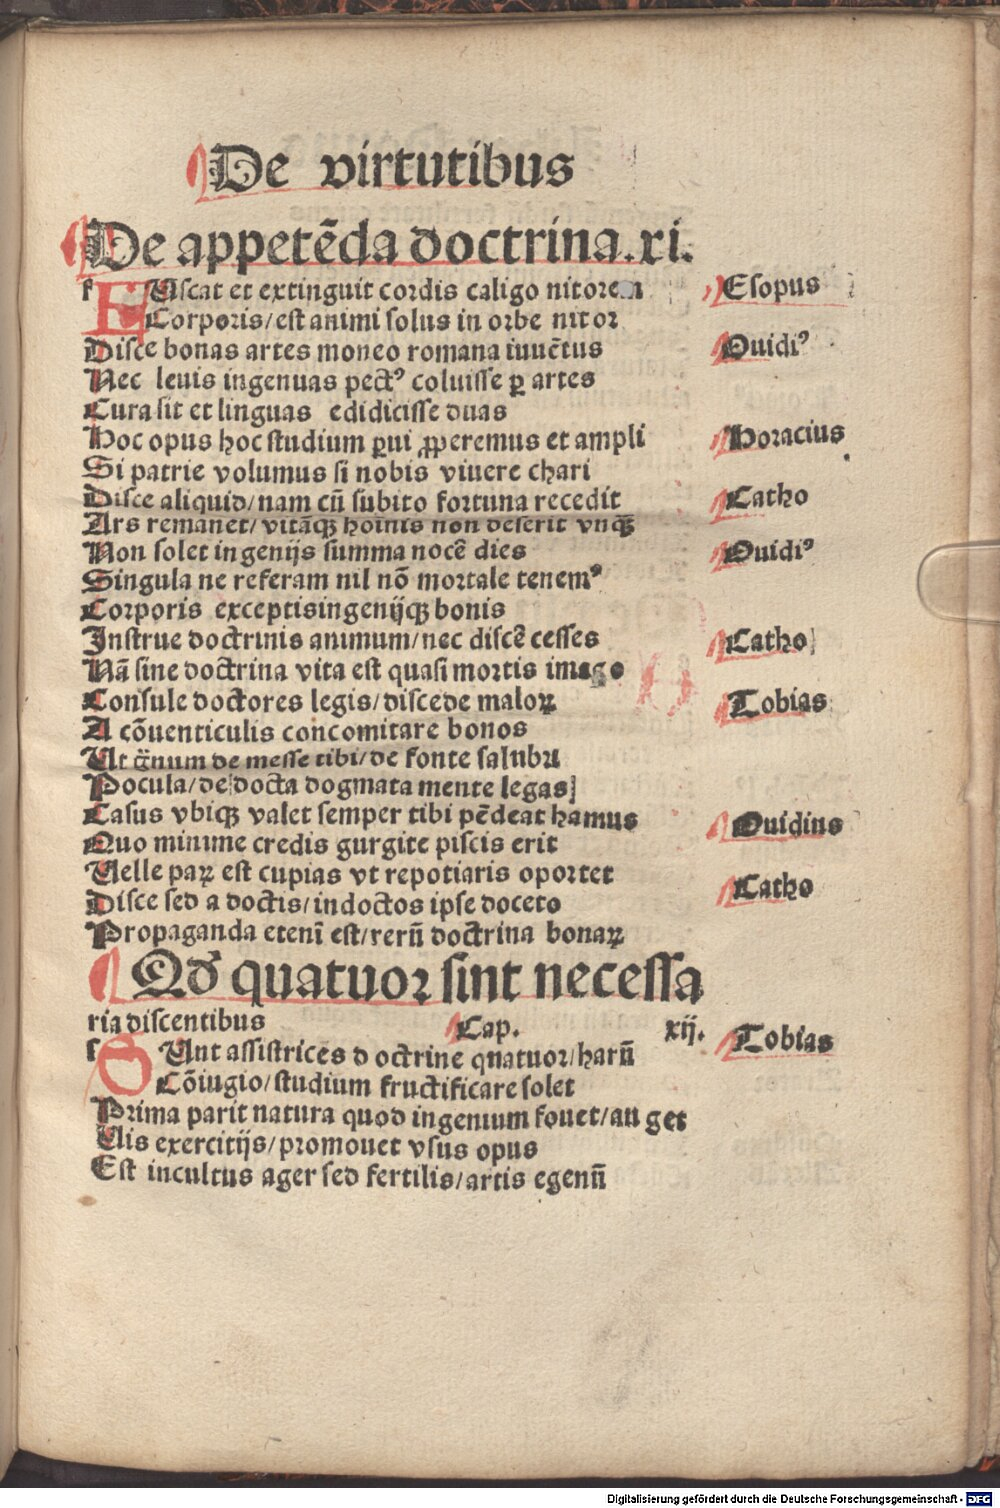 De virtutibus
De appetēda doctrina.xi.
f FUscat et extinguit cordis caligo nitorem Esopus
Corporis/est animi solus in orbe nitor
Disce bonas artes moneo romana iuuētus Ouidiꝰ
Nec leuis ingenuas pectꝰ coluisse ꝑ artes
Cura sit et linguas edidicisse duas
Hoc opus hoc studium ꝑui ꝓperemus et ampli Horacius
Si patrie volumus si nobis viuere chari
Disce aliquid/nam cū subito fortuna recedit Catho
Ars remanet/vitāqꝫ hoīnis non deserit vnqꝫ̄
Non solet ingenijs summa nocē dies Ouidiꝰ
Singula ne referam nil nō mortale tenemꝰ
Corporis exceptisingenijqꝫ bonis
Instrue doctrinis animum/nec discē cesses Catho
Nā sine doctrina vita est quasi mortis imago
Consule doctores legis/discede maloꝝ Tobias
A cōuenticulis concomitare bonos
Ut gͣnum de messe tibi/de fonte salubri
Pocula/de docta dogmata mente legas
Casus vbiqꝫ valet semper tibi pēdeat hamus Ouidius
Quo minime credis gurgite piscis erit
Uelle paꝝ est cupias vt repotiaris oportet
Disce sed a doctis/indoctos ipse doceto Catho
Propaganda etenī est/rerū doctrina bonaꝝ
Qđ quatuor sint necessa
ria discentibus Cap. xij.
s SUnt assistrices d octrine qnatuor/harū Tobias
Cōiugio/studium fructificare solet
Prima parit natura quod ingenium fouet/au get
Uis exercitijs/promouet vsus opus
Est incultus ager sed fertilis/artis egenū
Digitalisierung gefördert durch die Deutsche Forschungsgemeinschaft - DFG